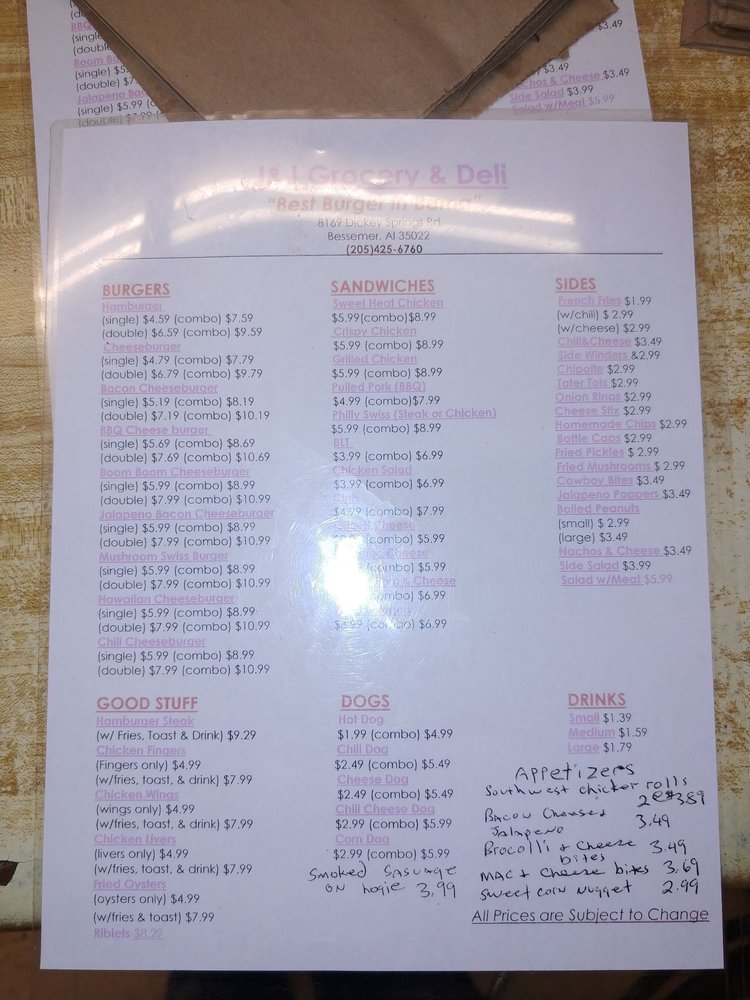 (single) $5.99
$3.49
Side Salad $3.99
Salad w/Meat $5.99
Grocery & Deli
"Best Burger in
8169 Dickey Springs Rd
Bessemer, Al 35022
(205)425-6760
BURGERS
Hamburger
(single) $4.59 (combo) $7.59
(double) $6.59 (combo) $9.59
Cheeseburger
(single) $4.79 (combo) $7.79
(double) $6.79 (combo) $9.79
Bacon Cheeseburger
(single) $5.19 (combo) $8.19
(double) $7.19 (combo) $10.19
BBQ Cheese burger
(single) $5.69 (combo) $8.69
(double) $7.69 (combo) $10.69
Boom Boom Cheeseburger
(single) $5.99 (combo) $8.99
(double) $7.99 (combo) $10.99
Jalapeno Bacon Cheeseburger
(single) $5.99 (combo) $8.99
(double) $7.99 (combo) $10.99
Mushroom Swiss Burger
(single) $5.99 (combo) $8.99
(double) $7.99 (combo) $10.99
Hawaiian Cheeseburger
(single) $5.99 (combo) $8.99
(double) $7.99 (combo) $10.99
Chili Cheeseburger
(single) $5.99 (combo) $8.99
(double) $7.99 (combo) $10.99
SANDWICHES
Sweet Heat Chicken
$5.99(combo)$8.99
Crispy Chicken
$5.99 (combo) $8.99
Grilled Chicken
$5.99 (combo) $8.99
Pulled Pork (BBQ)
$4.99 (combo)$7.99
Philly Swiss (Steak or Chicken)
$5.99 (combo) $8.99
BLT
$3.99 (combo) $6.99
Chicken Salad
$3.99 (combo) $6.99
$4.99 (combo) $7.99
Cheese
(combo) $5.99
Cheese
(combo) $5.99
& Cheese
(combo) $6.99
(combo) $6.99
SIDES
French Fries $1.99
(w/chili) $ 2.99
(w/cheese) $2.99
Chili&Cheese $3.49
Side Winders &2.99
Chipotle $2.99
Tater Tots $2.99
Onion Rings $2.99
Cheese Stix $2.99
Homemade Chips $2.99
Bottle Caps $2.99
Fried Pickles $ 2.99
Fried Mushrooms $ 2.99
Cowboy Bites $3.49
Jalapeno Poppers $3.49
Boiled Peanuts
(small) $ 2.99
(large) $3.49
Nachos & Cheese $3.49
Side Salad $3.99
Salad w/Meat $5.99
GOOD STUFF
Hamburger Steak
(w/ Fries, Toast & Drink) $9.29
Chicken Fingers
(Fingers only) $4.99
(w/fries, toast, & drink) $7.99
Chicken Wings
(wings only) $4.99
(w/fries, toast, & drink) $7.99
Chicken Livers
(livers only) $4.99
(w/fries, toast, & drink) $7.99
Fried Oysters
(oysters only) $4.99
(w/fries & toast) $7.99
Riblets $8.29
DOGS
Hot Dog
$1.99 (combo) $4.99
Chili Dog
$2.49 (combo) $5.49
Cheese Dog
$2.49 (combo) $5.49
Chili Cheese Dog
$2.99 (combo) $5.99
Corn Dog
$2.99 (combo) $5.99
Smoked Sasuage
on hogie 3.99
DRINKS
Small $1.39
Medium $1.59
Large $1.79
Appetizers
Southwest chicken rolls
Bacon Cheese
Jalapeno 3.49
Brocolli & Cheese 3.49
bites
MAC & Cheese bites 3.69
Sweet corn Nugget 2.99
All Prices are Subject to Change